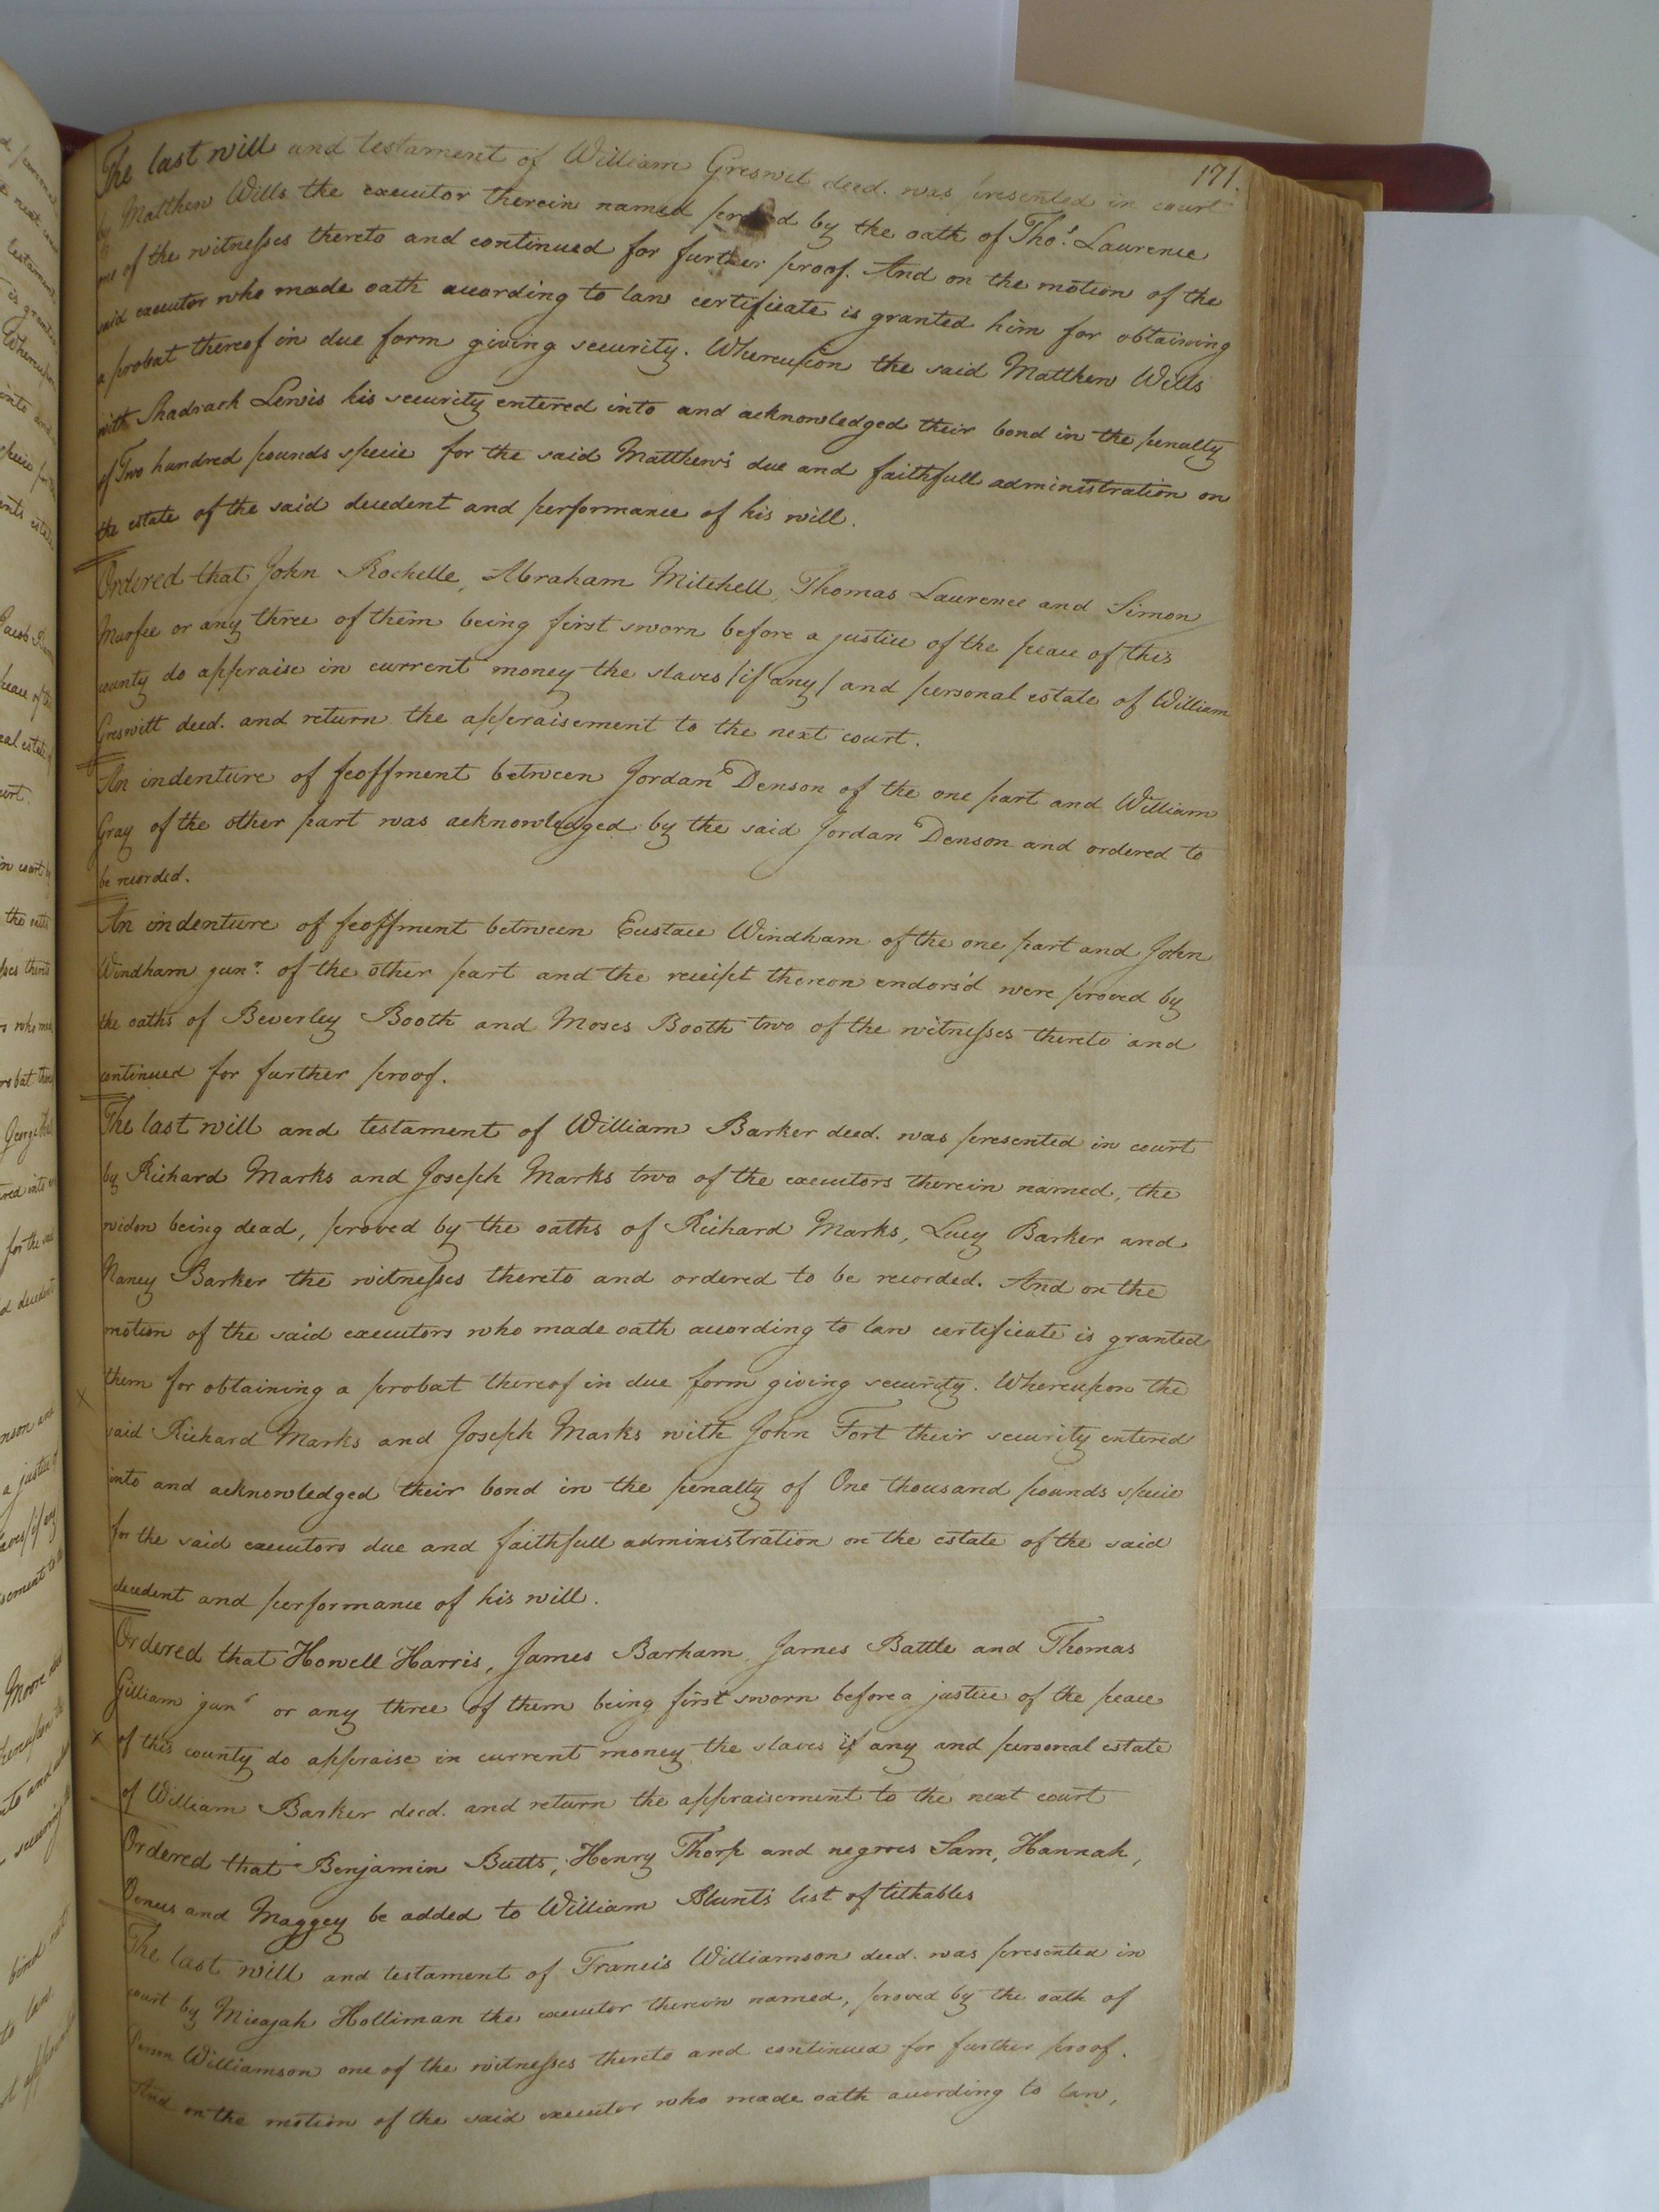 171.
The last will and testament of William Greswit deced. was presented in court
by Matthew Wills the executor therein named proved by the oath of Thos. Laurence
one of the witnesses thereto and continued for further proof. And on the motion of the
said executor who made oath according to law certificate is granted him for obtaining
a probat thereof in due form giving security. Whereupon the said Matthew Wills
with Shadrach Lewis his security entered into and acknowledged their bond in the penalty
of Two hundred pounds specie for the said Matthew's due and faithfull administration on
the estate of the said decedent and performance of his will.
Ordered that John Rochelle, Abraham Mitchell, Thomas Laurence and Simon
Murfee or any three of them being first sworn before a justice of the peace of this
county do appraise in current money the slaves /if any/ and personal estate of William
Greswitt deced. and return the appraisement to the next court.
An indenture of feoffment between Jordan Denson of the one part and William
Gray of the other part was acknowledged by the said Jordan Denson and ordered to
be recorded.
An indenture of feoffment between Eustace Windham of the one part and John
Windham junr. of the other part and the receipt thereon endors'd were proved by
the oaths of Beverley Booth and Moses Booth two of the witnesses thereto and
continued for further proof.
The last will and testament of William Barker deced. was presented in court
by Richard Marks and Joseph Marks two of the executors therein named, the
widow being dead, proved by the oaths of Richard Marks, Lucy Barker and
Nancy Barker the witnesses thereto and ordered to be recorded. And on the
motion of the said executors who made oath according to law certificate is granted
them for obtaining a probat thereof in due form giving security. Whereupon the
said Richard Marks and Joseph Marks with John Fort their security entered
into and acknowledged their bond in the penalty of One thousand pounds specie
for the said executors due and faithfull administration on the estate of the said
decedent and performance of his will.
Ordered that Howell Harris, James Barham, James Battle and Thomas
Gilliam junr or any three of them being first sworn before a justice of the peace
of this county do appraise in current money the slaves if any and personal estate
of William Barker deced. and return the appraisement to the next court
Ordered that Benjamin Butts, Henry Thorp and negroes Sam, Hannah,
and Maggey be added to William Blunt's list of tithables
The last will and testament of Francis Williamson deced. was presented in
court by Micajah Holliman the executor therein named, proved by the oath of
Williamson one of the witnesses thereto and continued for further proof.
And on the motion of the said executor who made oath according to law,